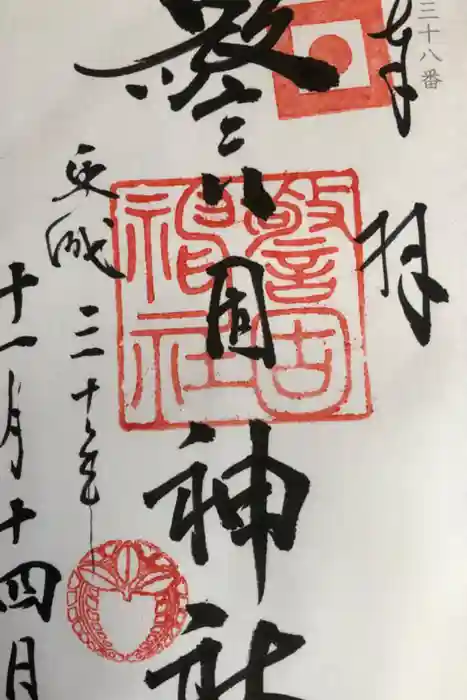 三十八番
奉拝
警固神社
警固
神社
平成三十年
十一月十四日